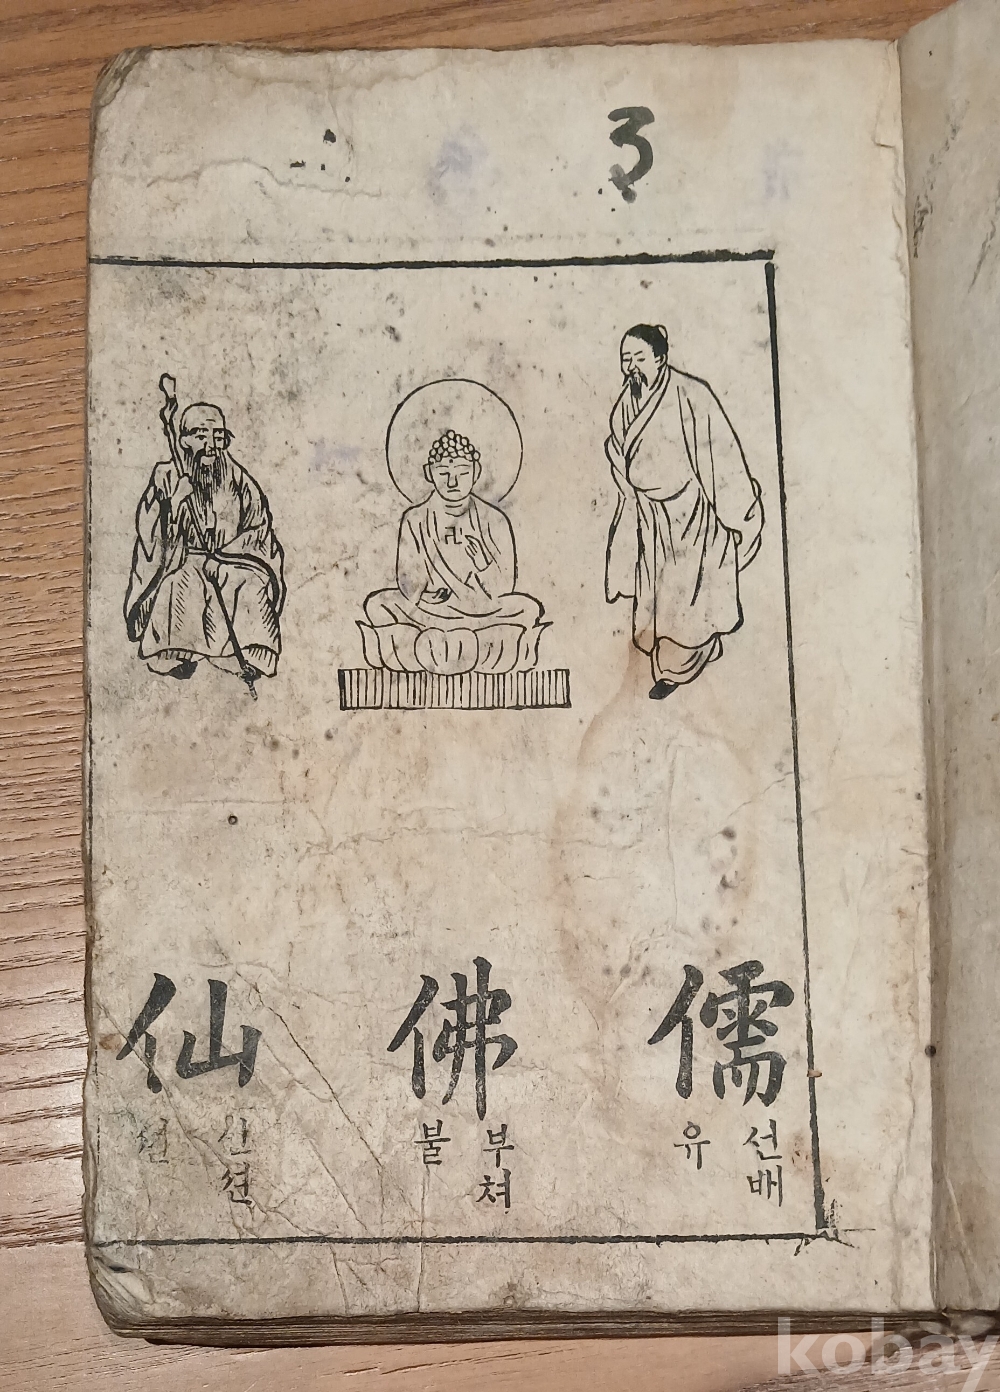 儒
선배
유
佛
부쳐
불
仙
신션
션
kobay